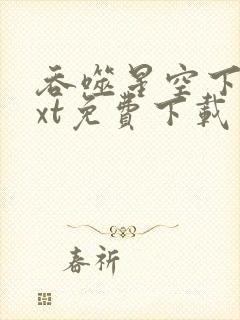 吞噬星空下
xt免費下載
春祈